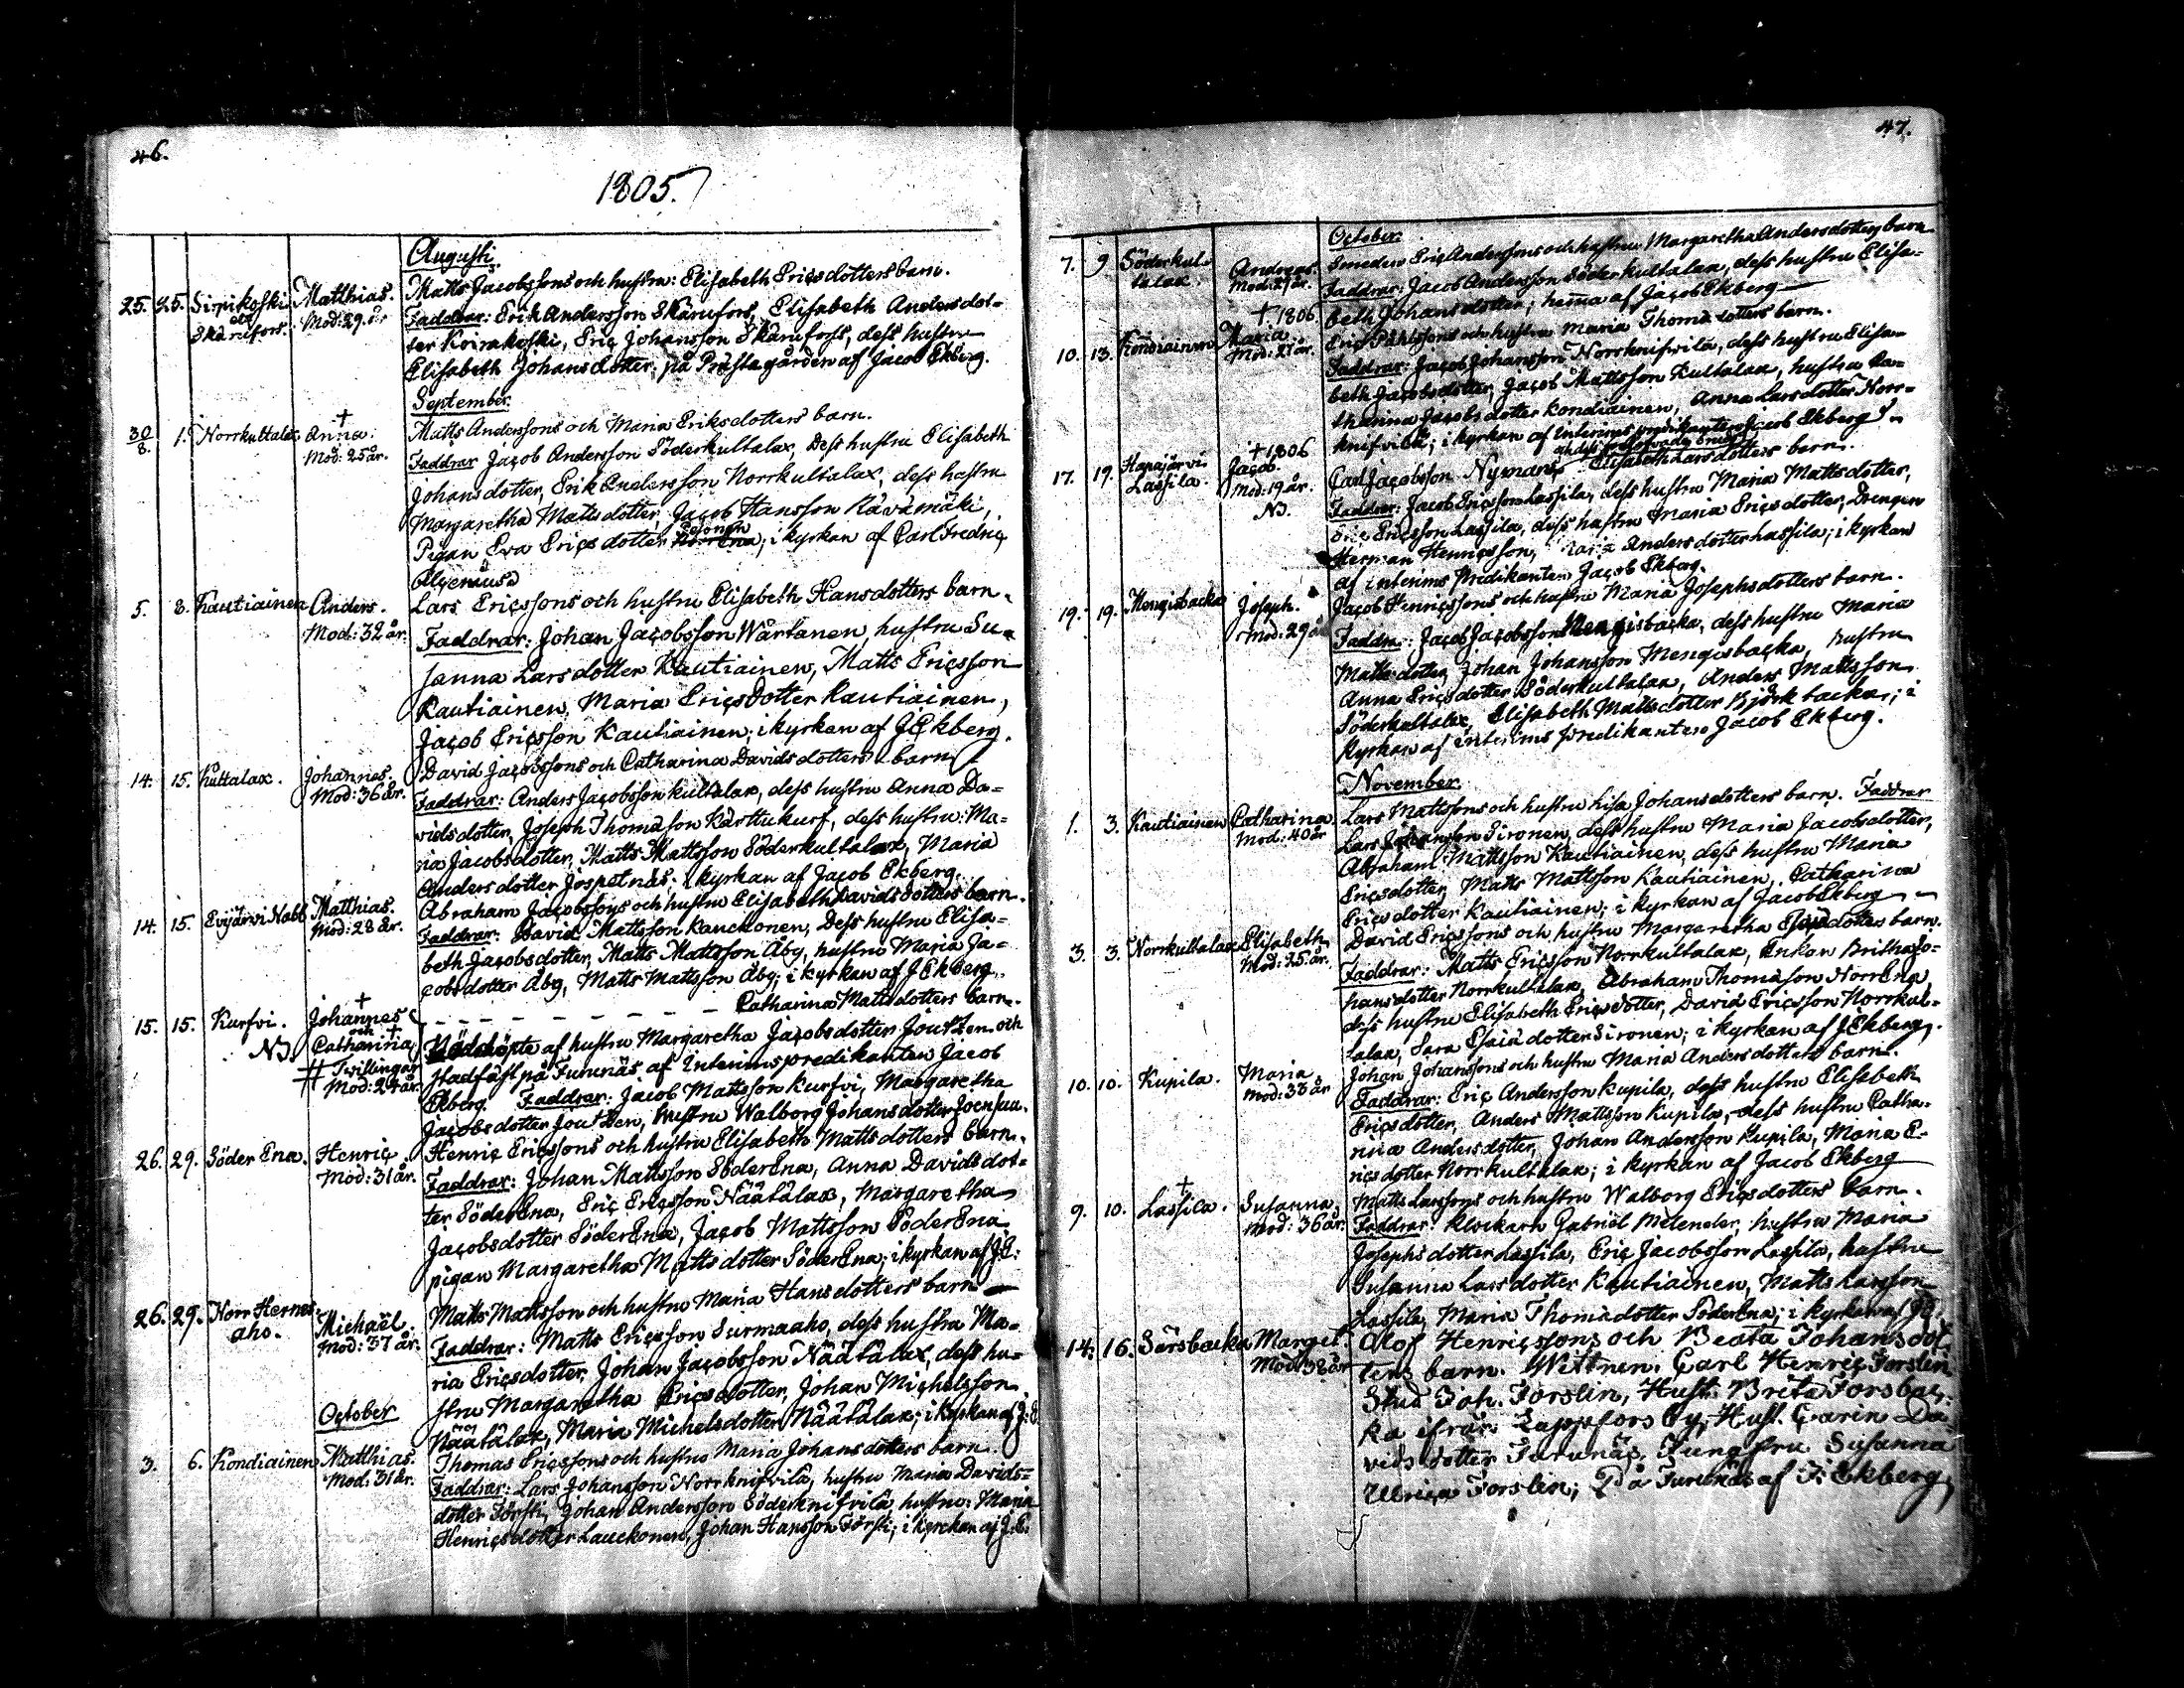 46.
1805.
Augusti
25. 25. Sirpikoski Matthias. Matts Jacobssons och hustru: Elisabeth Ericsdotters barn.
Skärufors. Mod: 29. år Faddrar: Erik Andersson Skärufors, Elisabeth Andersdot=
ter Koirakoski, Eric Johansson Skärufors, dess hustru
Elisabeth Johansdotter; på Prästagården af Jacob Ekberg.
September
30/8. 1. Norrkultalax Anna. + Matts Anderssons och Maria Eriksdotters barn.
Mod: 25 år. Faddrar Jacob Andersson Söderkultalax, Dess hustru Elisabeth
Johansdotter, Erik Andersson Norrkultalax, dess hustru
Margaretha Mattsdotter, Jacob Hansson Rävämäki,
Pigan Eva Ericsdotter; i kyrkan af Carl Fredric
Alcenius
5. 8. Kautiainen Anders. Lars Ericssons och hustru Elisabeth Hansdotters barn.
Mod: 32 år. Faddrar: Johan Jacobsson Wärtanen, hustru Su=
sanna Larsdotter Kautiainen, Matts Ericsson
Kautiainen, Maria Ericsdotter Kautiainen,
Jacob Ericsson Kautiainen; i kyrkan af J Ekberg.
14. 15. Kultalax. Johannes. David Jacobssons och Catharina Davidsdotters barn
Mod: 36 år. Faddrar: Anders Jacobsson Kultalax, dess hustru Anna Da=
vidsdotter, Joseph Thomasson Kärttukurf, dess hustru: Ma=
ria Jacobsdotter, Matts Mattsson Söderkultalax, Maria
Andersdotter Jospetnäs; i kyrkan af Jacob Ekberg.
14. 15. Evijärvi Nabb Matthias. Abraham Jacobssons och hustru Elisabeth Davidsdotters barn.
Mod: 28 år. Faddrar: David Mattsson Kauckonen, Dess hustru Elisa=
beth Jacobsdotter, Matts Mattsson Åby, hustru Maria Ja=
cobsdotter Åby, Matts Mattsson Åby; i kyrkan af J Ekberg.
15. 15. Kurfvi. Johannes + Catharina Mattsdotters barn.
NB. och Catharina + Nöddöpte af hustru Margaretha Jacobsdotter Joutzen och
# Tvillingar stadfäst på Furunäs af Interimspredikanten Jacob
Mod: 24 år. Ekberg. Faddrar: Jacob Mattsson Kurfvi, Margaretha
Jacobsdotter Joutzen, hustru Walborg Johansdotter Joensuu.
26. 29. Söder Ena. Henric Henric Ericssons och hustru Elisabeth Mattsdotters barn.
Mod: 31 år. Faddrar: Johan Mattsson SöderEna, Anna Davidsdot=
ter SöderEna, Eric Ericsson Näätälax, Margaretha
Jacobsdotter SöderEna, Jacob Mattsson SöderEna
pigan Margaretha Mattsdotter SöderEna; i kyrkan af J. E:
26. 29. Norr Hernes= Michaël. Matts Mattsson och hustru Maria Hansdotters barn
aho. Mod: 37 år. Faddrar: Matts Ericsson Surmaaho, dess hustru Ma=
ria Ericsdotter, Johan Jacobsson Näätälax, dess hu=
stru Margaretha Ericsdotter, Johan Michelsson
Näätälax, Maria Michelsdotter Näätälax; i kyrkan af J: E.
October
3. 6. Kondiainen Matthias. Thomas Ericssons och hustru Maria Johansdotters barn
Mod: 31 år. Faddrar: Lars Johansson Norrknifvilä, hustru Maria Davids=
dotter Försti, Johan Andersson Söderknifvilä, hustru: Maria
Henricsdotter Lauckonen, Johan Hansson Försti; i kyrckan af J. E.
47.
October.
7. 9 Söderkul= Andreas. Smeden Eric Anderssons och hustru Margaretha Andersdotters barn
talax. Mod: 29 år. Faddrar: Jacob Andersson Söderkultalax, dess hustru Elisa=
beth Johansdotter; hemma af Jacob Ekberg
10. 13. Kondiainen + 1806. Maria Eric Påhlssons och hustru Maria Thomædotters barn.
Mod: 27 år. Faddrar: Jacob Johansson Norrknifvilä, dess hustru Elisa=
beth Jacobsdotter, Jacob Mattsson Kultalax, hustru Ca=
tharina Jacobsdotter Kondiainen, Anna Larsdotter Norr=
knifvilä; i kyrkan af Interims predikanten Jacob Ekberg
17. 19. Haapajärvi + 1806 Jacob. Carl Jacobsson Nymans Elisabeth Larsdotters barn.
Lassila. Mod: 19 år. Faddrar: Jacob Ericsson Lassila, dess hustru Maria Mattsdotter,
NB. Eric Ericsson Lassila, dess hustru Maria Ericsdotter, Drengen
Herman Henricsson, Maria Andersdotter Lassila; i kyrkan
af interims Predikanten Jacob Ekberg.
19. 19. Mengisbacka Joseph. Jacob Henricssons och hustru Maria Josephsdotters barn.
Mod: 29 år Faddrar: Jacob Jacobsson Mengisbacka, dess hustru Maria
Mattsdotter, Johan Johansson Mengisbacka, hustru
Anna Ericsdotter Söderkultalax, Anders Mattsson
Söderkultalax, Elisabeth Mattsdotter Björkbacka; i
kyrkan af interims predikanten Jacob Ekberg.
November
1. 3. Kautiainen Catharina Lars Mattssons och hustru Lisa Johansdotters barn. Faddrar
Mod: 40 år Lars Johansson Sironen, dess hustru Maria Jacobsdotter,
Abraham Mattsson Kautiainen, dess hustru Maria
Ericsdotter, Matts Mattsson Kautiainen, Catharina
Ericsdotter Kautiainen; i kyrkan af Jacob Ekberg
3. 3. Norrkultalax Elisabeth David Ericssons och hustru Margaretha Esaiædotters barn.
Mod: 25 år. Faddrar: Matts Ericsson Norrkultalax, Enkan Britha Jo=
hansdotter Norrkultalax, Abraham Thomasson NorrEna,
dess hustru Elisabeth Ericsdotter, David Ericsson Norrkul=
talax, Sara Esaiædotter Sironen; i kyrkan af J Ekberg.
10. 10. Kupila. Maria Johan Johanssons och hustru Maria Andersdotters barn.
Mod: 38 år Faddrar: Eric Andersson Kupila, dess hustru Elisabeth
Ericsdotter, Anders Mattsson Kupila, dess hustru Catha=
rina Andersdotter, Johan Andersson Kupila, Maria E=
ricsdotter Norrkultalax; i kyrkan af Jacob Ekberg
9. 10. Lassila. + Susanna Matts Larssons och hustru Walborg Ericsdotters barn.
Mod: 36 år. Faddrar: Klockarn Gabriël Melender, hustru Maria
Josephsdotter Lassila, Eric Jacobsson Lassila, hustru
Susanna Larsdotter Kautiainen, Matts Larsson
Lassila, Maria Thomædotter SöderEna; i kyrkan af J E.
14. 16. Särsbacka Marget. Olof Henricssons och Beata Johansdot=
Mod: 38 år ters barn. Wittnen. Carl Henric Forslin
Stud Joh. Forslin, Hust. Brita Forsbac=
ka ifrån Lappfors by, Hust. Carin Da=
vidsdotter Furunäs, Jungfru Susanna
Ulrica Forslin; På Furunäs af J: Ekberg